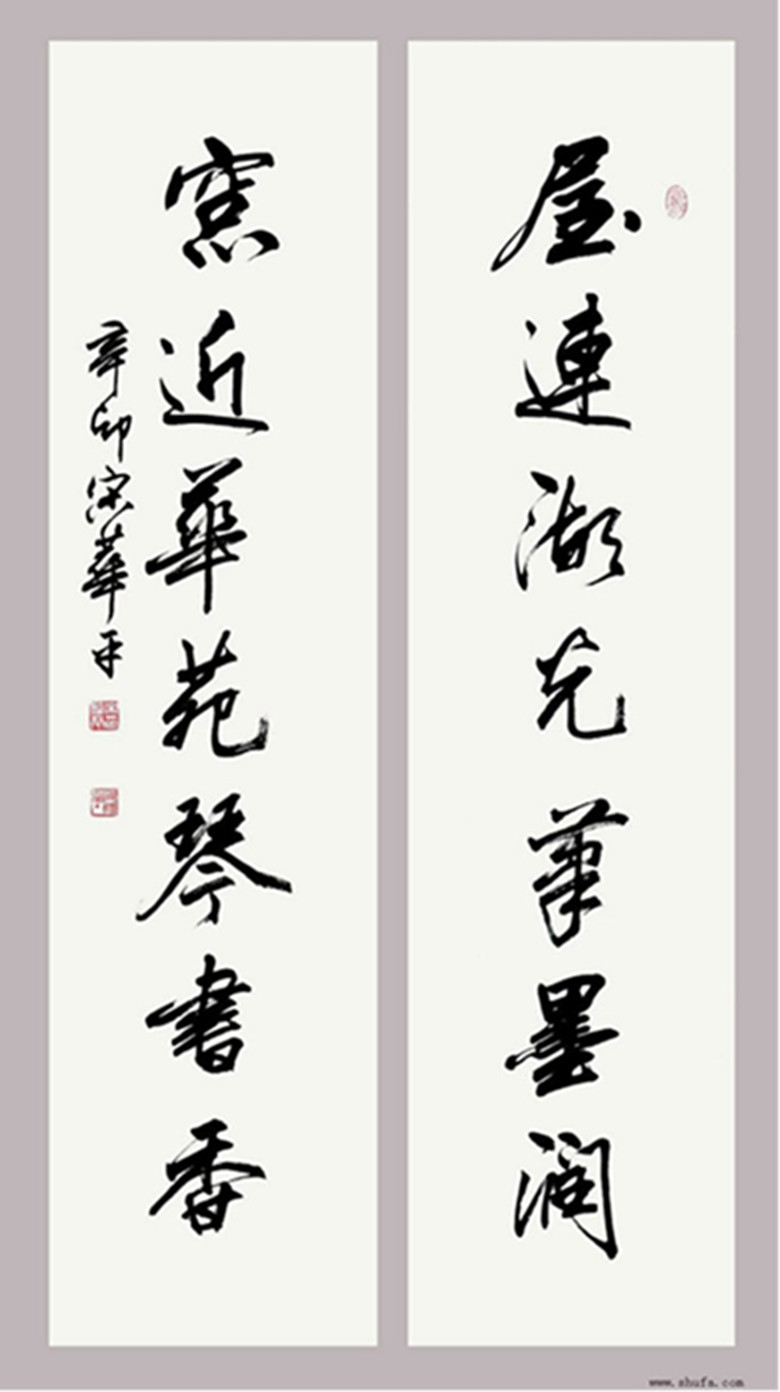 屋連湖光筆墨潤
窓近華苑琴書香
辛卯宋華平
www.shufa.com